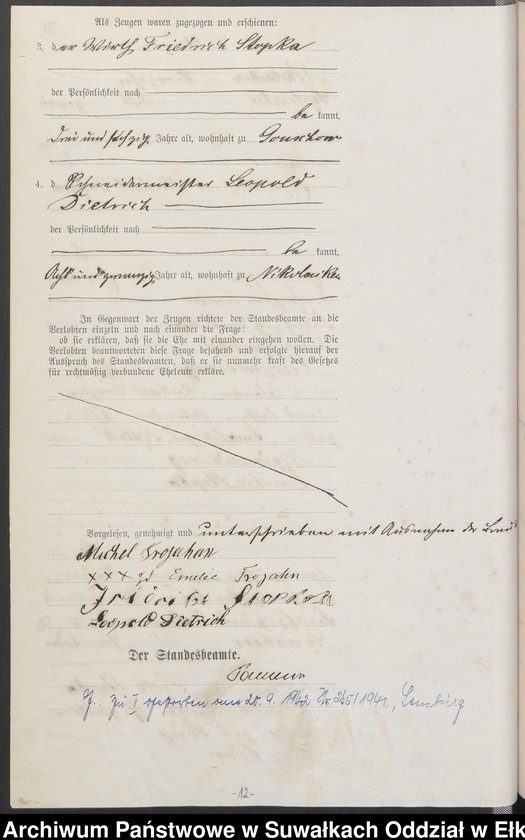 Als Zeugen waren zugezogen und erschienen:
3. der Wirth Friedrich Stopka
der Persönlichkeit nach
be kannt,
drei und fünfzig Jahre alt, wohnhaft zu
4. d Schneidermeister Leopold
Dietrich
der Persönlichkeit nach
be kannt,
Acht und zwanzig Jahre alt, wohnhaft zu Nikolaiken
In Gegenwart der Zeugen richtete der Standesbeamte an die
Verlobten einzeln und nach einander die Frage:
ob sie erklären, daß sie die Ehe mit einander eingehen wollen. Die
Verlobten beantworteten diese Frage bejahend und erfolgte hierauf der
Ausspruch des Standesbeamten, daß er sie nunmehr kraft des Gesetzes
für rechtmäßig verbundene Eheleute erkläre.
Vorgelesen, genehmigt und unterschrieben mit Ausnahme der
Michel Trojahan
xxx Emilie Trojahn
Fridricht Stopka
Leopold Dietrich
Der Standesbeamte.
zu I gestorben am 20. 9. 1942 Nr. 265/1942, Sensburg
-12-
Archiwum Państwowe w Suwałkach Oddział w Ełk